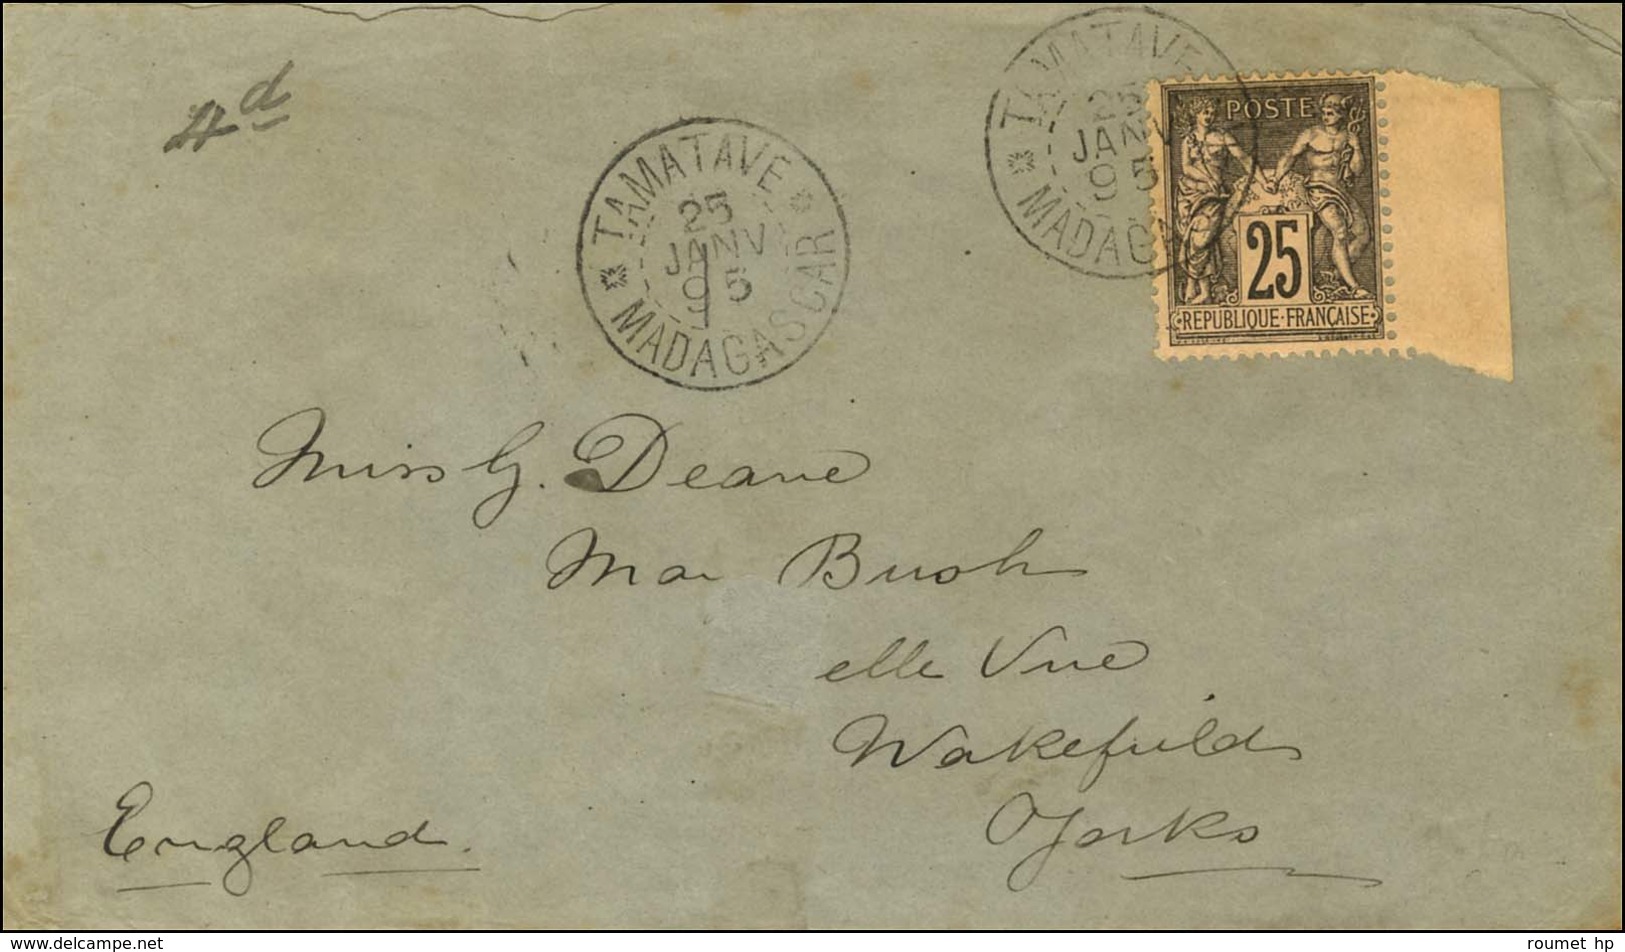 4d
TAMATAVE
25
JANV
95
MADAGASCAR
TAMATAVE
25
JANV
95
MADAGASCAR
POSTE
25
REPUBLIQUE FRANÇAISE
Miss G. Deane
Mar Bush
elle Vue
Wakefield
Yorks
England.
www.delcampe.net
roumet hp